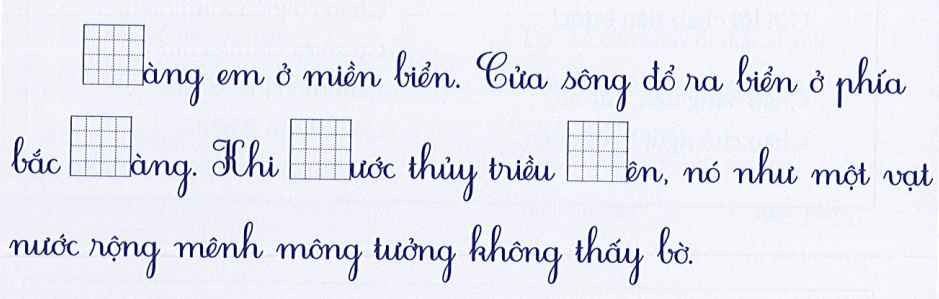 àng em ở miền biển. Cửa sông đổ ra biển ở phía
bắc àng. Khi ước thủy triều ên, nó như một vạt
nước rộng mênh mông tưởng không thấy bờ.